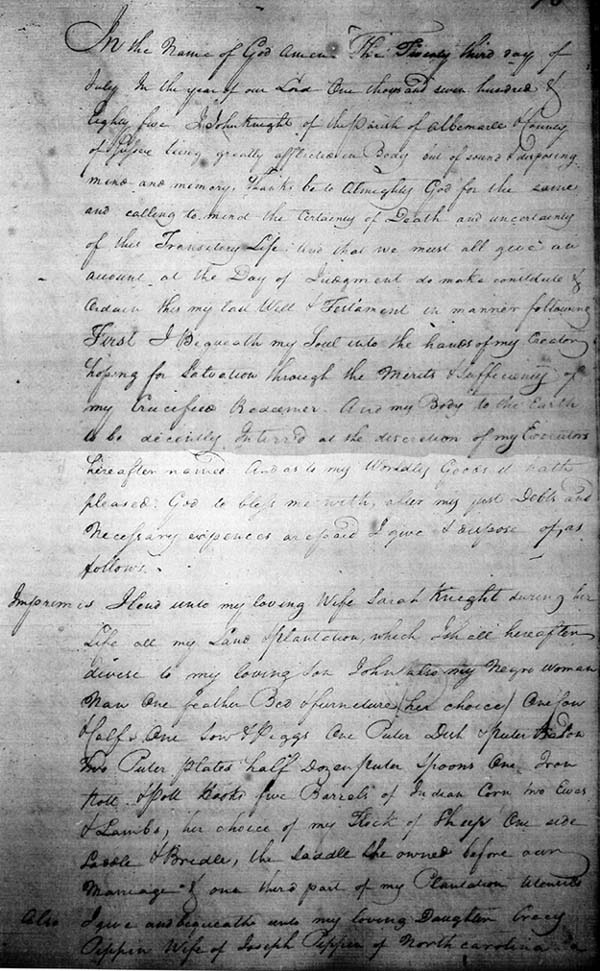 In the Name of God Amen The Twenty third day of
July In the year of our Lord One thousand seven hundred &
Eighty five I John Knight of the Parish of Albemarle & County
of Sussex being greatly afflicted in Body but of sound & disposing
mind and memory, thanks be to Almighty God for the same
and calling to mind the Certainty of Death and uncertainty
of this Transitory Life And that we must all give an
account at the Day of Judgment do make constitute &
Ordain this my Last Will & Testament in manner following
First I Bequeath my Soul into the hands of my Creator
hoping for Salvation through the Merits & Sufficiency of
my Crucified Redeemer. And my Body to the Earth
to be decently Interred at the discretion of my Executors
hereafter named And as to my Worldly Goods it hath
pleased God to bless me with, after my just Debts and
Necessary expences are paid I give & dispose of, as
follows.
Imprimis I lend unto my loving Wife Sarah Knight during her
Life all my Land & plantation, which I shall hereafter
devise to my loving Son John also my Negro woman
Nan One feather Bed & furneture (her choice) One Cow
& Calf One Sow & Piggs One Puter Dish & Puter Bason
two Puter plates half Dozen puter Spoons One Iron
Pott & Pott Hooks five Barrels of Indian Corn two Ewes
& Lambs, her choice of my Flock of Sheep One side
Saddle & Bridle, the Saddle she owned before our
Marriage & one third part of my Plantation
Also I give and bequeath unto my loving Daughter Crecy
Peppin Wife of Joseph Peppin of North carolina a